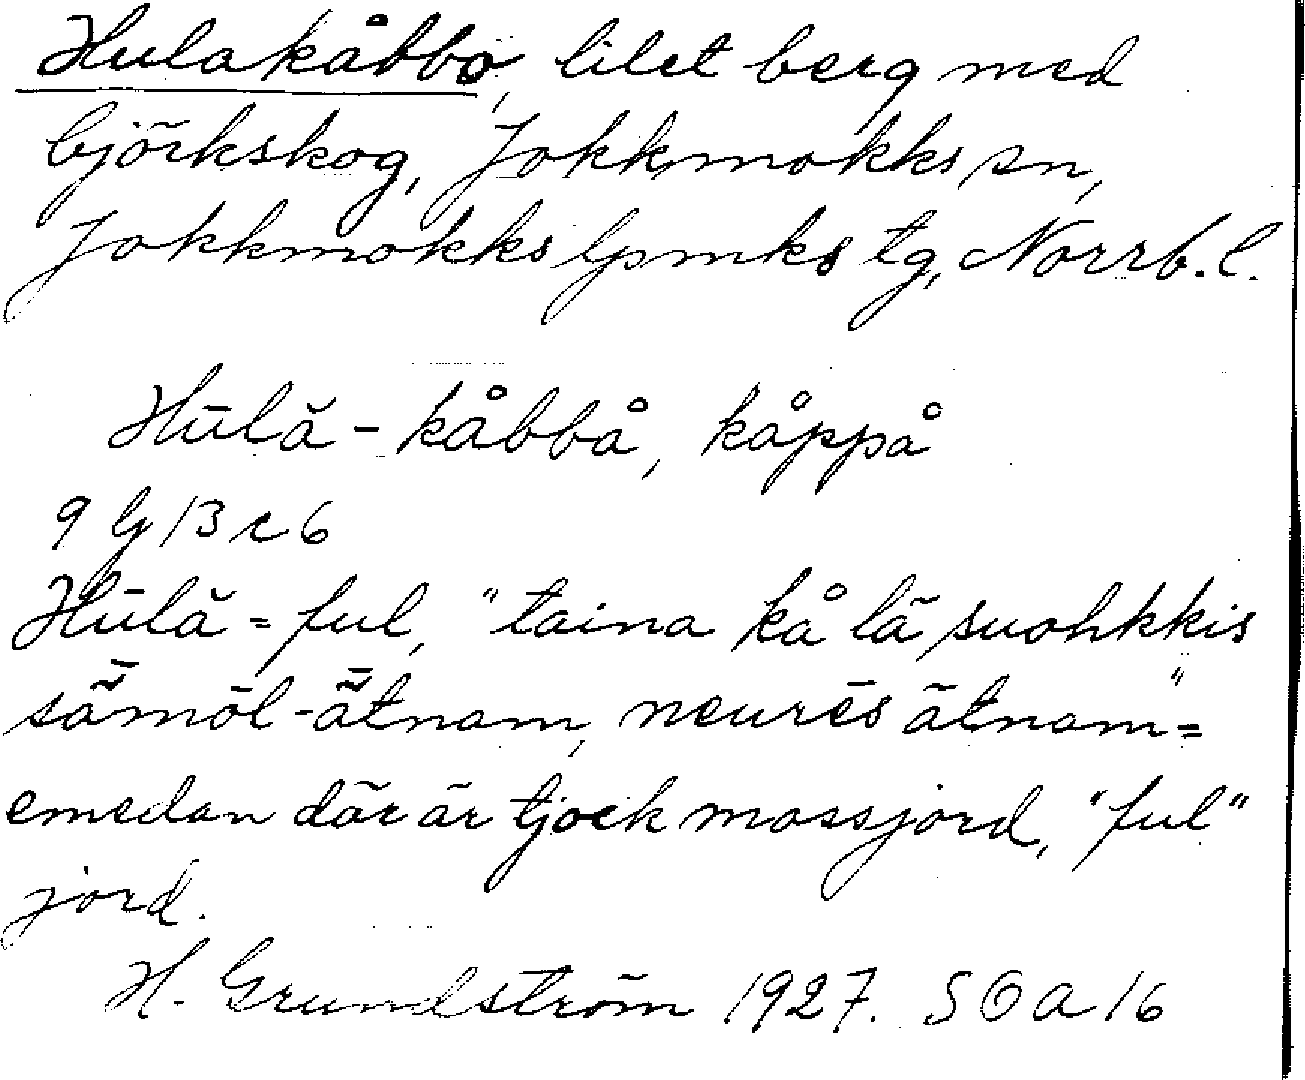 Hulakåbbo, litet berg med
björkskog, Jokkmokks sn,
Jokkmokks lpmks tg, Norrb. l.
Hūlă - kåbbå, kåppå
9 lj 13 c 6
Hūlă = ful, "taina kå lä suohkkis
sāmōl-ätnam, neurēs ätnam" =
emedan där är tjock mossjord, "ful"
jord.
H. Grundström 1927. SOA 16